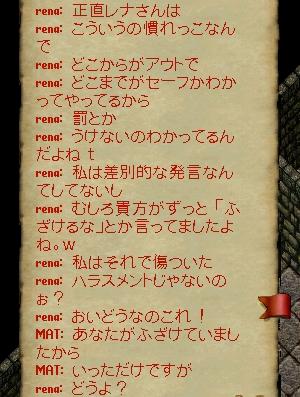 rena: 正直レナさんは
rena: こういうの慣れっこなん
で
rena: どこからがアウトで
rena: どこまでがセーフかわか
ってやってるから
rena: 罰とか
rena: うけないのわかってるん
だよね t
rena: 私は差別的な発言なん
てしてないし
rena: むしろ貴方がずっと「ふ
ざけるな」とか言ってましたよ
ね。w
rena: 私はそれで傷ついた
rena: ハラスメントじゃないの
ぉ？
rena: おいどうなのこれ！
MAT: あなたがふざけていまし
たから
MAT: いっただけですが
rena: どうよ？